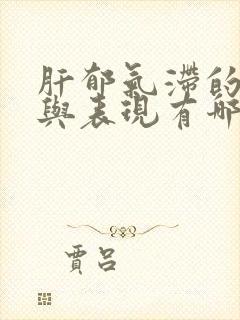 肝郁氣滯的
與表現有哪
賈呂